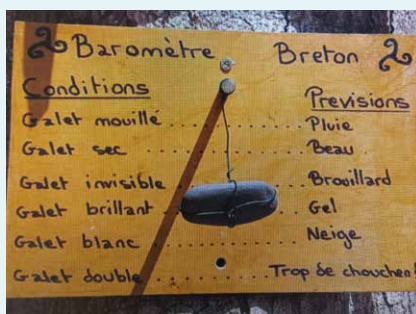 Baromètre Breton
Conditions Previsions
Galet mouillé .......... Pluie
Galet sec .......... Beau
Galet invisible .......... Brouillard
Galet brillant .......... Gel
Galet blanc .......... Neige
Galet double .......... Trop de chouchen!